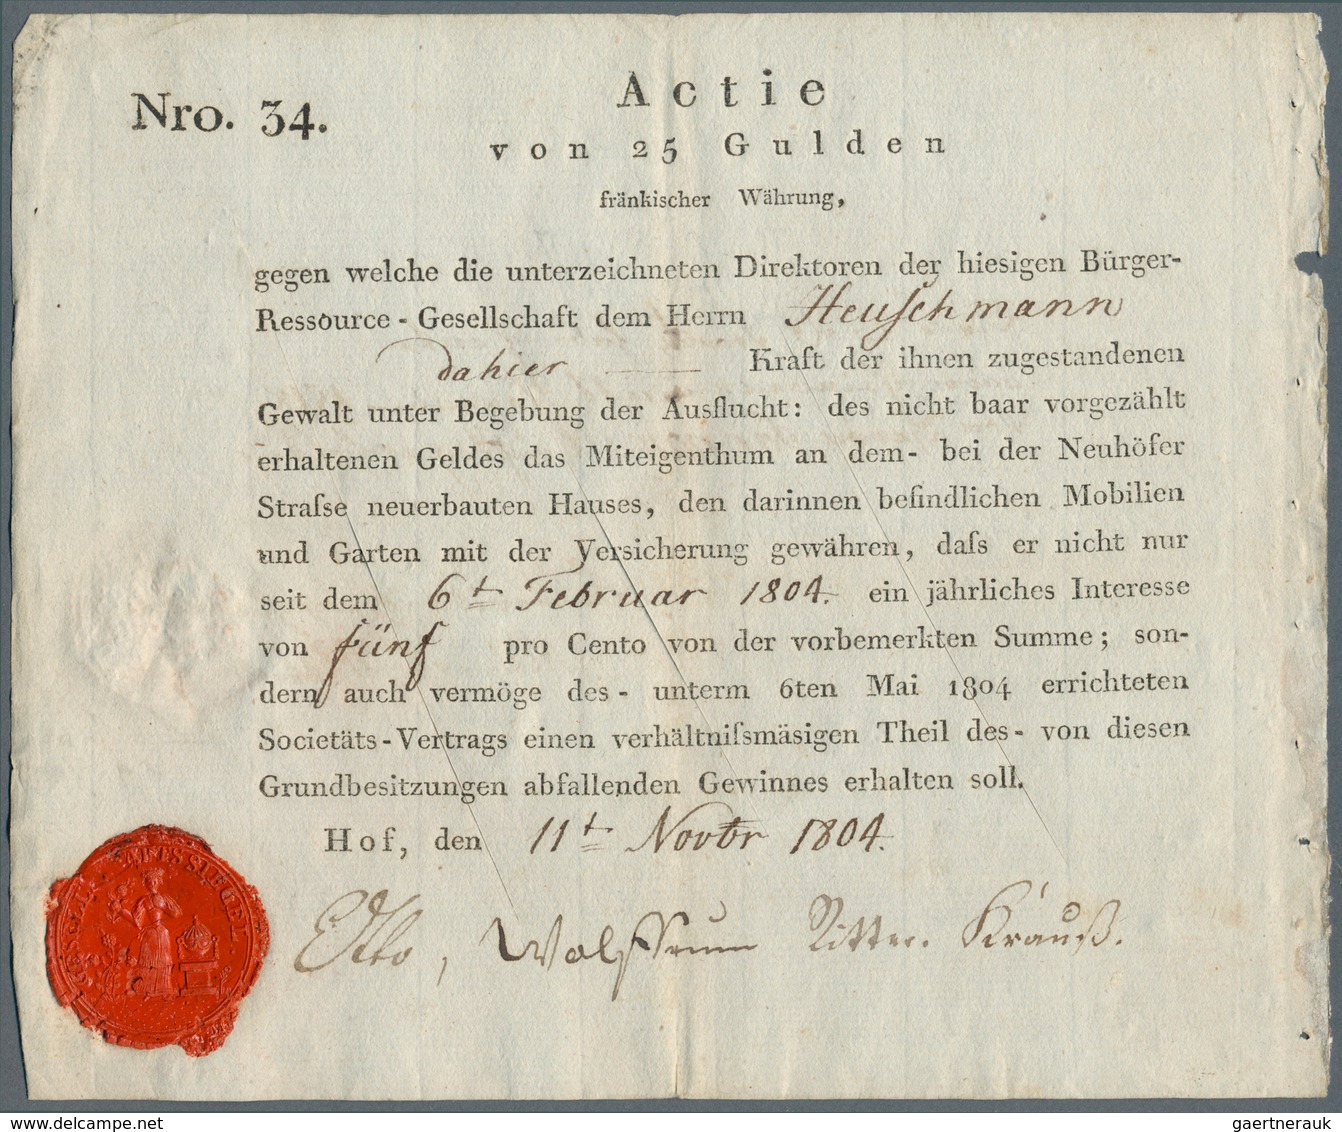 Nro. 34.
Actie
von 25 Gulden
fränkischer Währung,
gegen welche die unterzeichneten Direktoren der hiesigen Bürger-
Ressource - Gesellschaft dem Herrn Heuſchmann
dahier Kraft der ihnen zugestandenen
Gewalt unter Begebung der Ausflucht: des nicht baar vorgezählt
erhaltenen Geldes das Miteigenthum an dem- bei der Neuhöfer
Straſse neuerbauten Hauses, den darinnen befindlichen Mobilien
und Garten mit der Versicherung gewähren, daſs er nicht nur
seit dem 6t Februar 1804. ein jährliches Interesse
von fünf pro Cento von der vorbemerkten Summe; son-
dern auch vermöge des - unterm 6ten Mai 1804 errichteten
Societäts-Vertrags einen verhältniſsmäsigen Theil des- von diesen
Grundbesitzungen abfallenden Gewinnes erhalten soll.
Hof, den 11t Novbr 1804.
Otto, Wolffrum Ritter. Krauß.
AMTSSIEGEL
www.delcampe.net
gaertnerauk